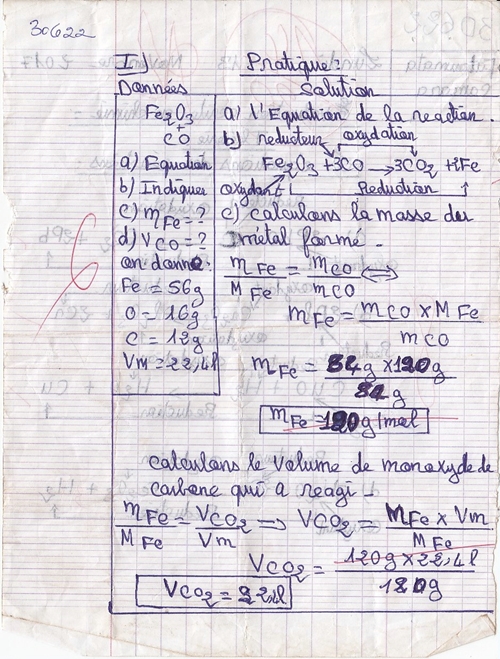 30622
II) Pratique:
Données
Fe2O3
+
CO
a) Equation
b) Indiquer
c) mFe = ?
d) VCO = ?
on donne:
Fe = 56g
O = 16g
C = 12g
Vm = 22,4l
Solution
a) l'Equation de la reaction.
b) reducteur oxydation
Fe2O3 + 3CO → 3CO2 + 2Fe
oxydant Reduction
c) calculons la masse du
métal formé.
mFe/MFe = mCO/mCO ⟺
mFe = mCO x MFe / mCO
mFe = 84g x 120g / 84g
mFe = 120g/mol
calculons le Volume de monoxyde de
carbone qui a reagi.
mFe/MFe = VCO2/Vm ⟹ VCO2 = MFe x Vm / MFe
VCO2 = 120g x 22,4l / 120g
VCO2 = 22,4l